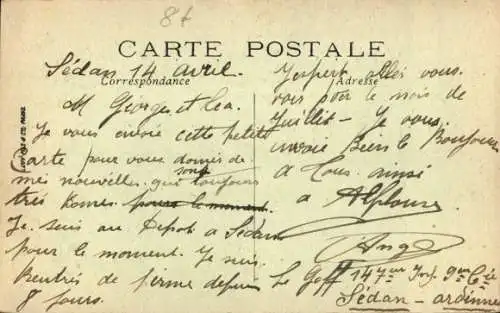 8t
CARTE POSTALE
Correspondance
Adresse
Sédan 14 avril.
M Georges et Lea
Je vous envoie cette petite
Carte pour vous donnés de
mes nouvelles, qui sont toujours
tres bonnes pour le moment.
Je suis au Depot a Sédan
pour le moment. Je suis
Rentrés de ferme depuis
8 jours.
J'espert allés vous
voir pour le mois de
Juillet - Je vous
envoie Biens le Bonjour
a tous ainsi
a Alphonse
Ange
Le Goff 147eme Inf. 9eme Cie
Sédan - ardennes